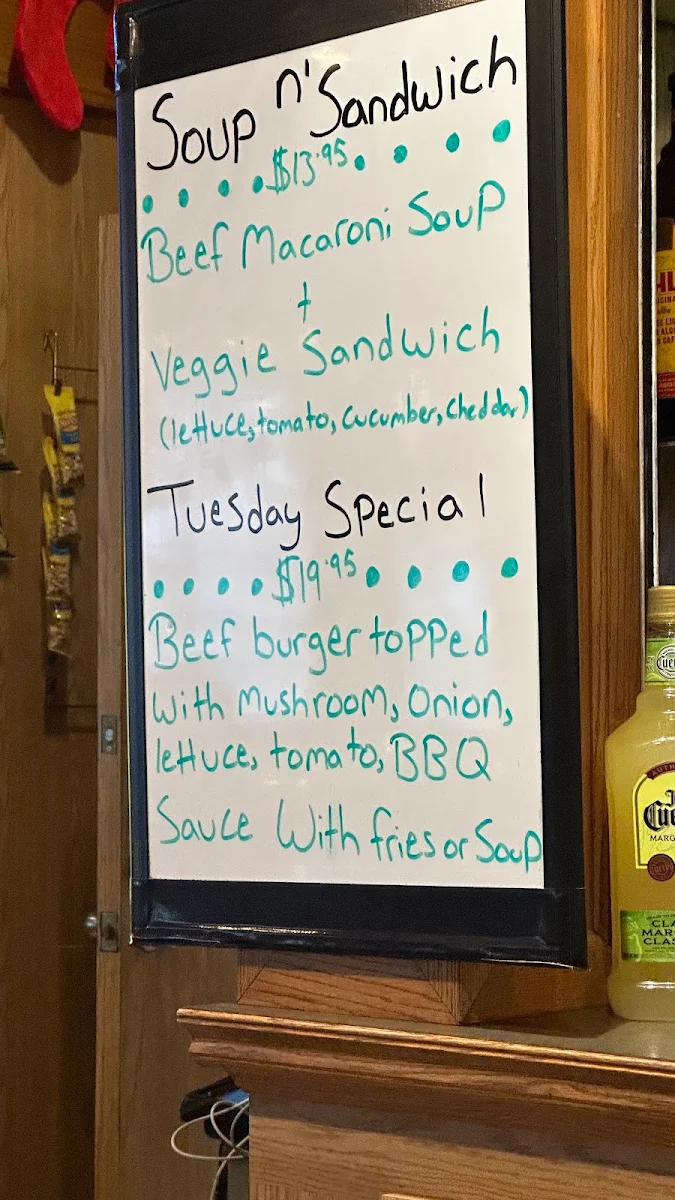 Soup n' Sandwich
$13.95
Beef Macaroni Soup
+
Veggie Sandwich
(lettuce, tomato, cucumber, cheddar)
Tuesday Special
$19.95
Beef burger topped
with mushroom, onion,
lettuce, tomato, BBQ
Sauce With fries or Soup
Cuervo
MARG
CLA
MAR
CLAS